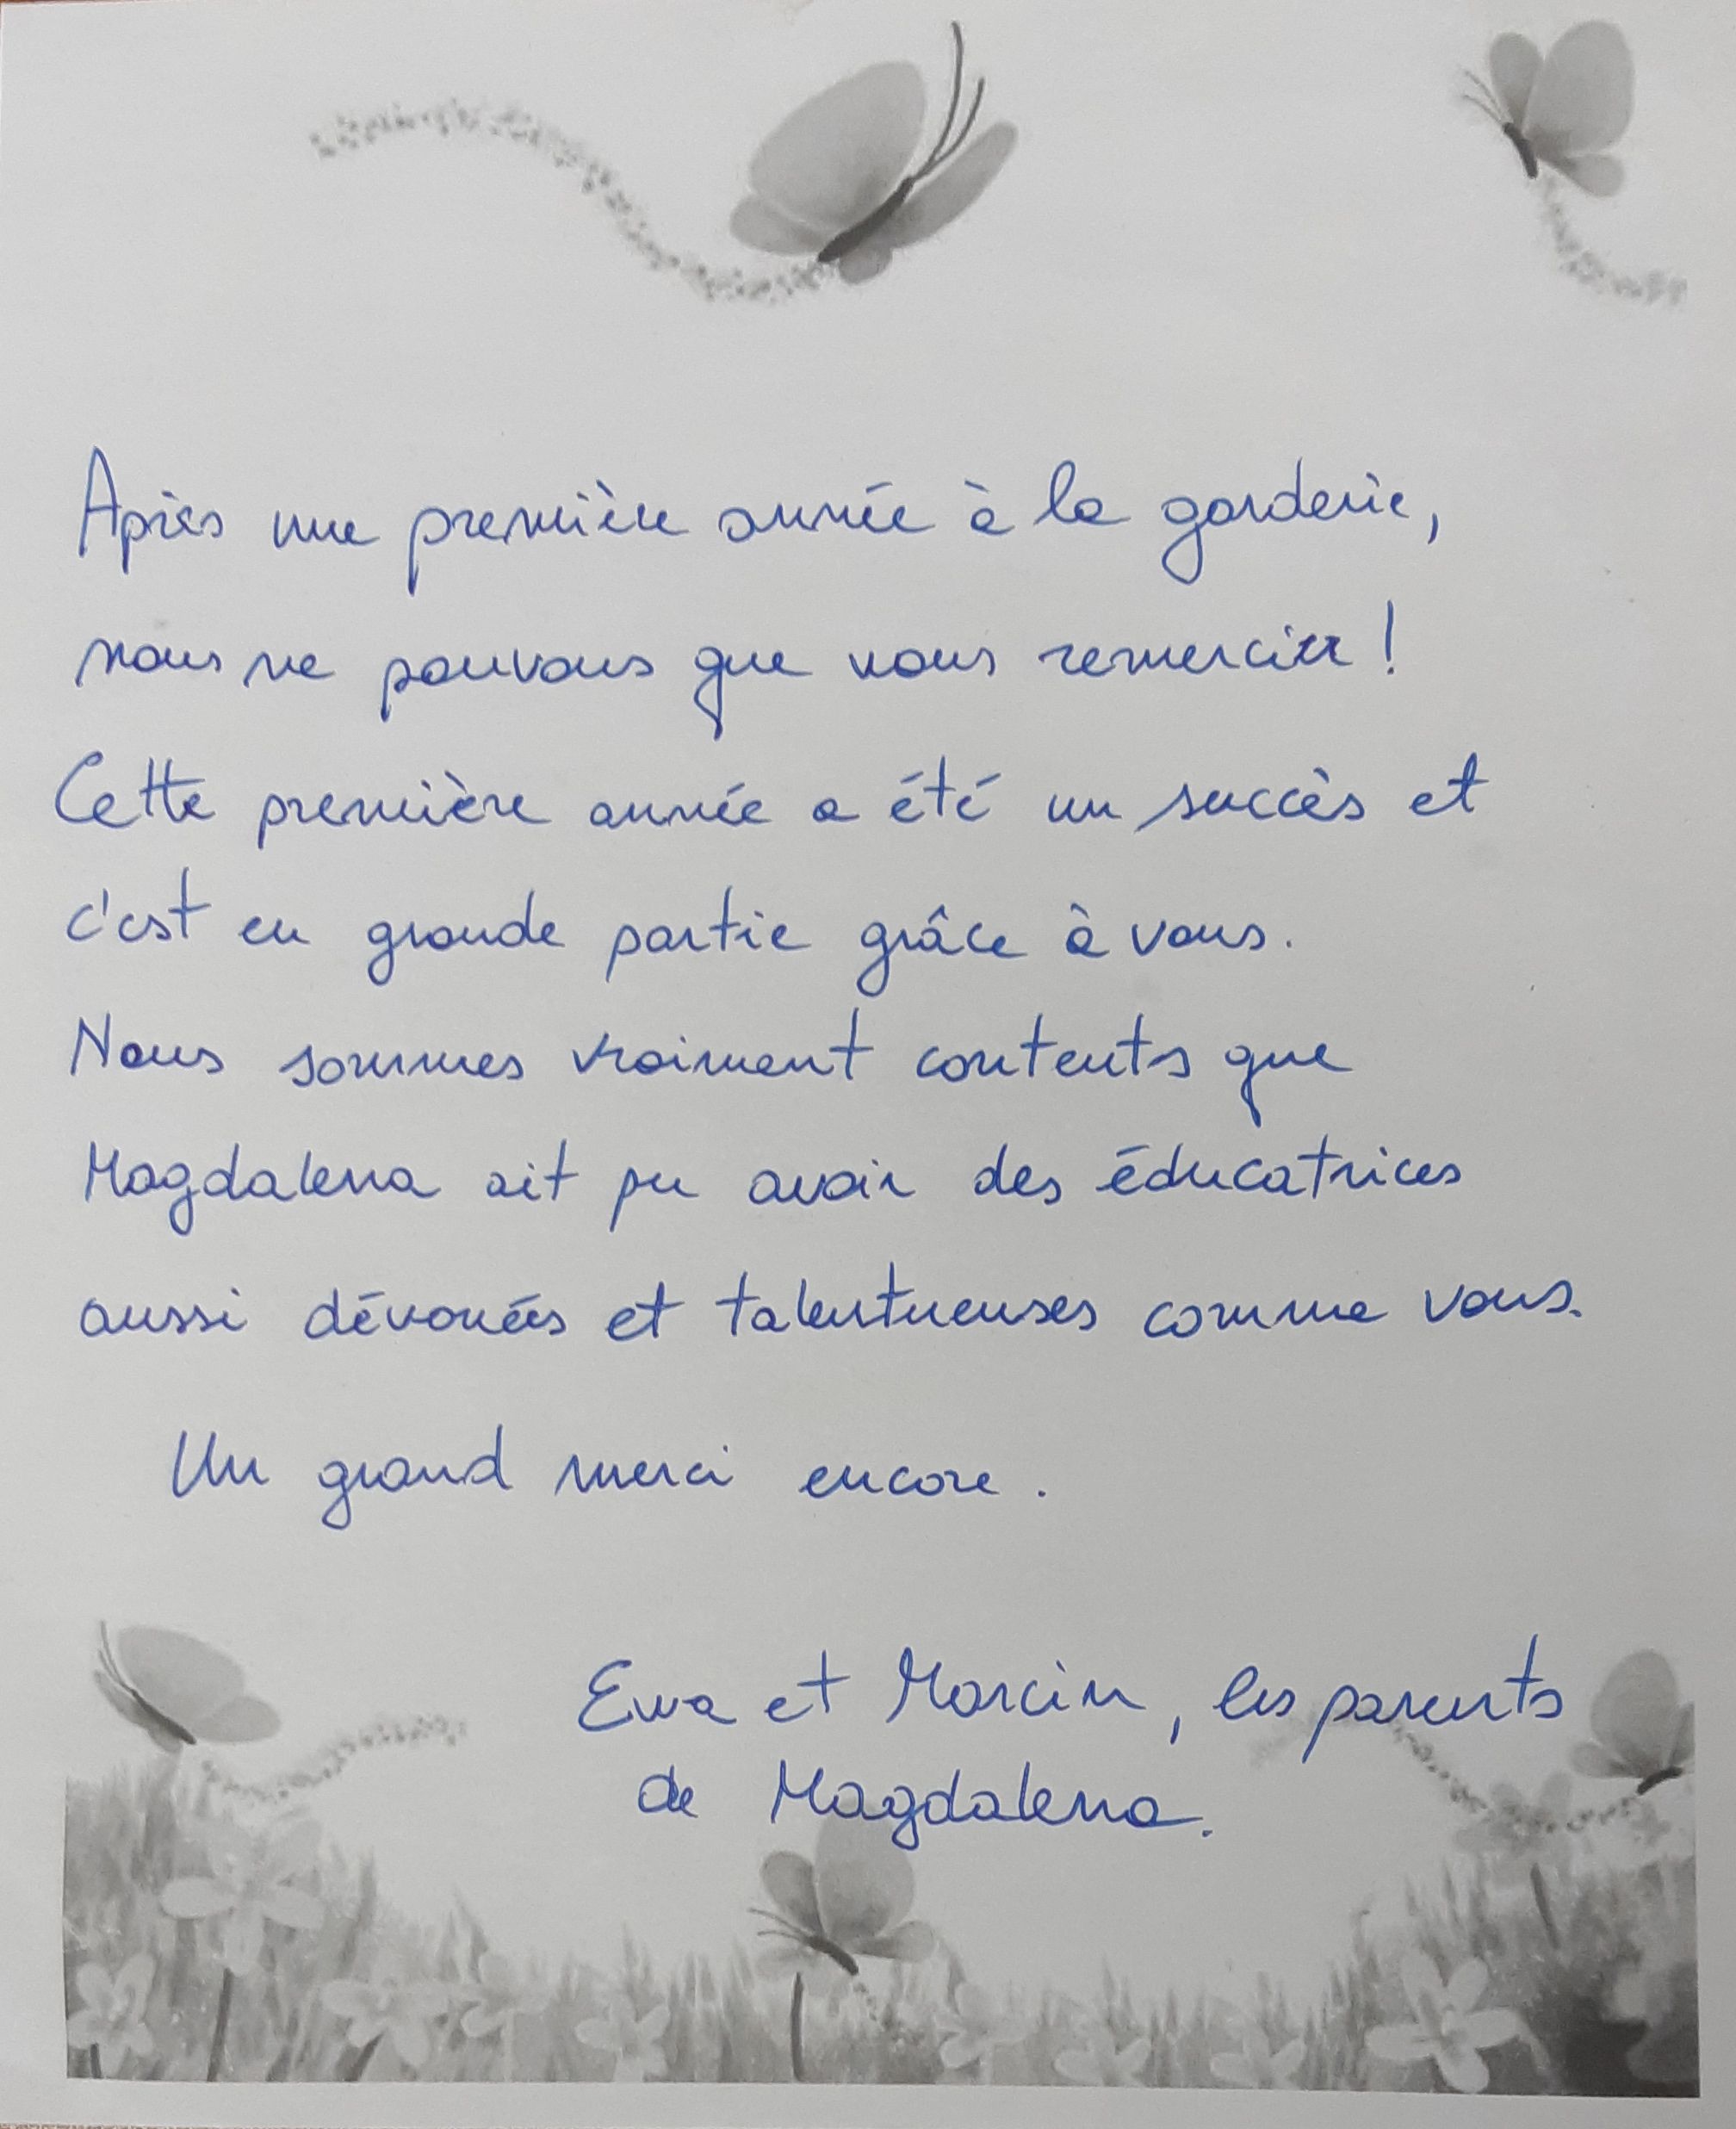 Après une première année à la garderie,
nous ne pouvons que vous remercier !
Cette première année a été un succès et
c'est en grande partie grâce à vous.
Nous sommes vraiment contents que
Magdalena ait pu avoir des éducatrices
aussi dévouées et talentueuses comme vous.
Un grand merci encore.
Ewa et Marcin, les parents
de Magdalena.